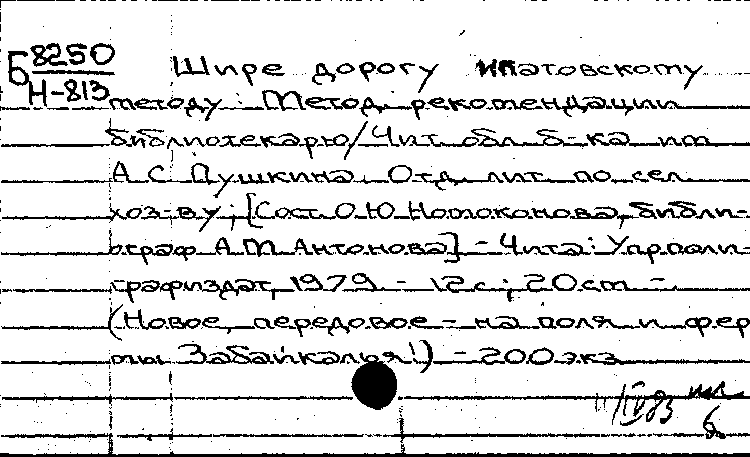 Б 8250
Н-813
Шире дорогу ипатовскому
методу: Метод. рекомендации
библиотекарю/Чит. обл. б-ка им.
А.С. Пушкина. Отд. лит. по сел.
хоз-ву; [Сост. О.Ю. Нотоконова, библи-
ограф А.М. Антонова] - Чита: Упрполи-
графиздат, 1979. - 12 с.; 20 cm -
(Новое, передовое - на поля и фер
мы Забайкалья!) - 200 экз
IV 83